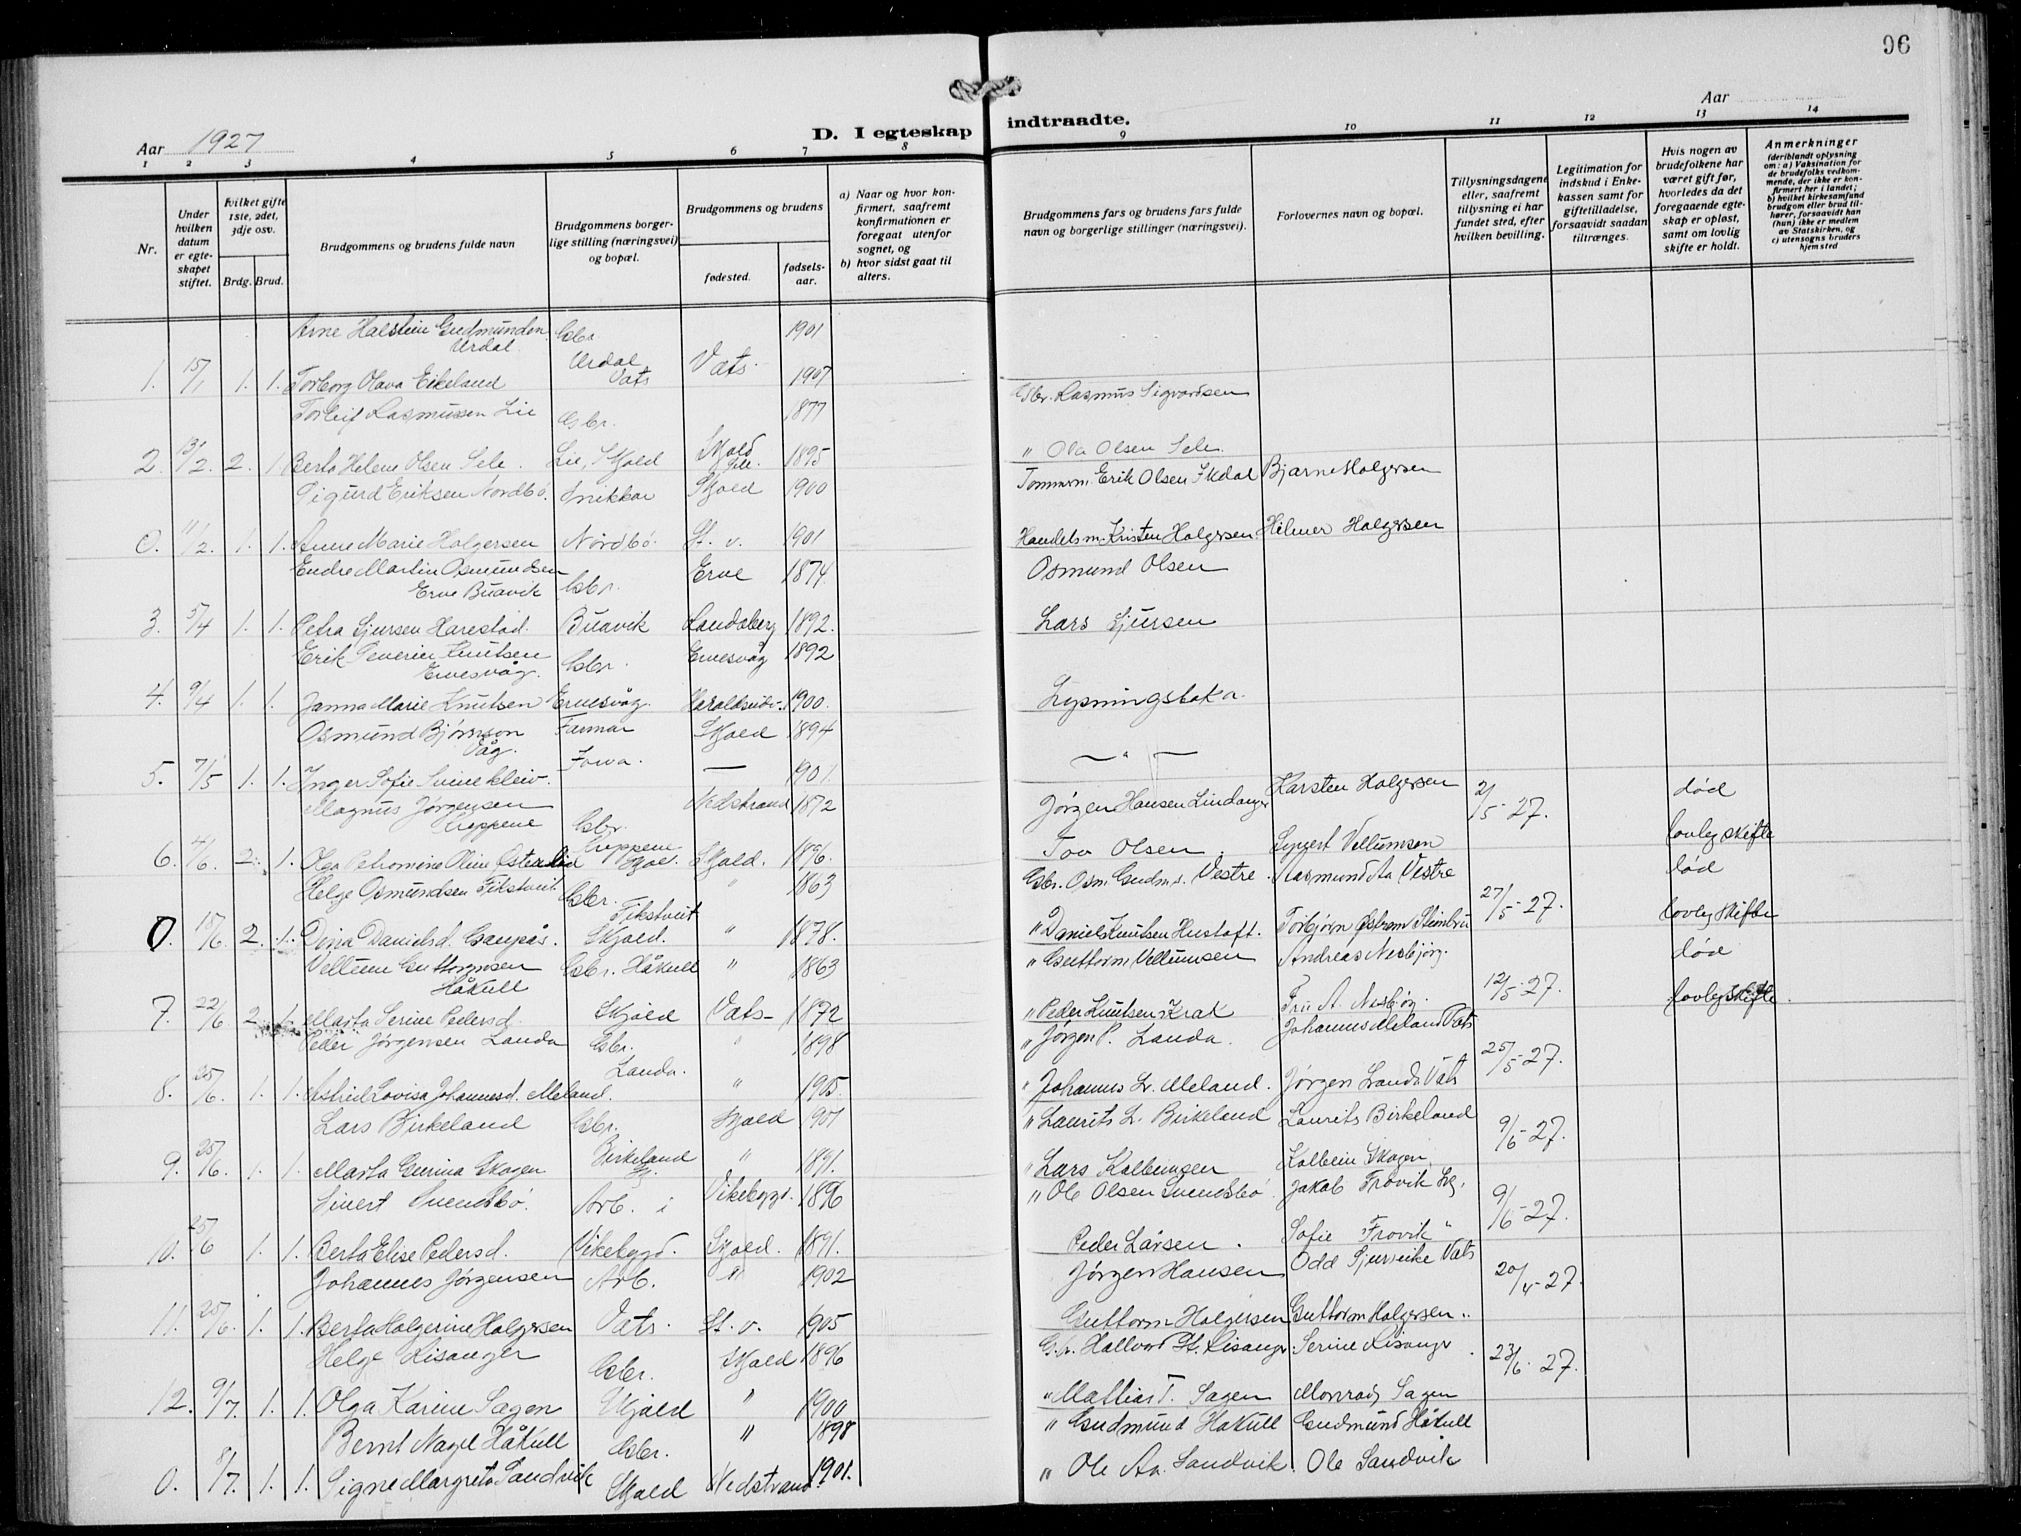 96
Aar 1927
D. I egteskap
indtraadte.
Aar
1 2 3 4 5 6 7 8 9 10 11 12 13 14
Nr.
Under hvilken datum er egteskapet stiftet.
Hvilket gifte 1ste, 2det, 3dje osv.
Brdg. Brud.
Brudgommens og brudens fulde navn
Brudgommens borgerlige stilling (næringsvei) og bopæl.
Brudgommens og brudens
fødested.
fødselsaar.
a) Naar og hvor konfirmert, saafremt konfirmationen er foregaat utenfor sognet, og
b) hvor sidst gaat til alters.
Brudgommens fars og brudens fars fulde navn og borgerlige stillinger (næringsvei).
Forlovernes navn og bopæl.
Tillysningsdagene eller, saafremt tillysning ei har fundet sted, efter hvilken bevilling.
Legitimation for indskud i Enkekassen samt for giftetilladelse, forsaavidt saadan tiltrænges.
Hvis nogen av brudefolkene har været gift før, hvorledes da det foregaaende egteskap er opløst, samt om lovlig skifte er holdt.
Anmerkninger
(deriblandt oplysning om: a) Vaksination for de brudefolks vedkommende, der ikke er konfirmert her i landet; b) hvilket kirkesamfund brudgom eller brud tilhører, forsaavidt han (hun) ikke er medlem av Statskirken, og c) utensogns bruders hjemsted
Arne Halstein Gudmundsen Gbr. 1901
Urdal. Urdal
1. 15/1 1. 1. Torborg Olava Eikeland Vats Vats. 1907 Gbr. Rasmus Sigvardsen
Torleif Rasmussen Lie Gbr. 1877
2. 13/2 2. 1 Berta Helene Olsen Sele. Lie, Skjold Skjold 1895 " Ola Olsen Sele
Sigurd Eriksen Nordbø. Snikkar Skjold 1900 Tømmerm. Erik Olsen Bjarne Holgersen
0. 11/2. 1. 1. Anne Marie Holgersen Nordbø. St. v. 1901 Handelsm. Kristen Holgersen Hilmer Holgersen
Endre Martin Osmundsen Gbr. Erve 1874 Osmund Olsen
Erve Buavik
3. 5/4 1. 1. Petra Sjursen Harestad. Buavik 1892. Lars Sjursen
Erik Severin Knutsen Gbr. 1892
4. 9/4 1. 1. Janna Marie Knutsen 1900. Lysningsboka
Osmund Bjørnson Farmar Skjold 1894
Våg. Iowa.
5. 7/5 1. 1. Inger Sofie Svinekleiv. — 1901. — " —
Magnus Jørgensen Gbr. Nedstrand 1872 Jørgen Hansen Lindanger Karsten Holgersen 2/5-27. død
6. 4/6 2. 1. Olga Petromine Oline Skjold. 1896. Tov Olsen. Vellumsen lovleg skifte
Helge Osmundsen Tikstveit Gbr. Tikstveit " 1863 Gbr. Osm. Gudms. Vestre. Aasmund Aa Vestre 27/5-27. død
0. 18/6. 2. 1. Dina Danielsd. Gaupås. Skjold. " 1878. " Daniel Knutsen Hustoft. Torbjørn lovleg skifte
Vellum Guttormsen Gbr. Håkull " 1863 " Guttorm Vellumsen Andreas død
Håkull
7. 22/6 2. 1. Marta Serine Pedersd. Skjold Vats- 1872 " Peder Knutsen Krak Fru A. 12/5-27. lovleg skifte.
Peder Jørgensen Landa Gbr. " 1898 " Jørgen P. Landa. Johannes Meland Vats
8. 25/6. 1. 1. Astrid Lovisa Johannesd. Meland. Landa. " 1905. " Johannes L. Meland. Jørgen Landa Vats 25/5-27.
Lars Birkeland Gbr. Skjold 1901 " Laurits L. Birkeland Laurits Birkeland
9. 25/6. 1. 1. Marta Gurina Skogen Birkeland " 1891. " Lars Kolbeinsen Kolbein Skogen 9/6-27.
Sivert Svendsbø. Arb. i Vikebygd. 1896 " Ole Olsen Svendsbø. Jakob Frøvik
10. 25/6 1. 1. Berta Elise Pedersd. Vikebygd. Skjold. 1891. Peder Larsen. Sofie Frøvik " 9/6-27.
Johannes Jørgensen Arb. " 1902 Jørgen Hansen Odd Vats
11. 25/6. 1. 1. Berta Holgerine Holgersen Vats. St. v. 1905 Guttorm Holgersen Guttorm Holgersen " 20/4-27.
Helge Lisanger Gbr. Skjold 1896 Gbr. Hallvard St. Lisanger Serine Lisanger
12. 9/7. 1. 1. Olga Karine Sagen Skjold " 1900 " Mathias T. Sagen Monrad Sagen 23/6-27.
Bernt Nagel Håkull Gbr. " 1898 " Gudmund Håkull Gudmund Håkull
0. 8/7. 1. 1. Signe Margreta Sandvik Skjold Nedstrand. 1901. " Ole Aa. Sandvik. Ole Sandvik